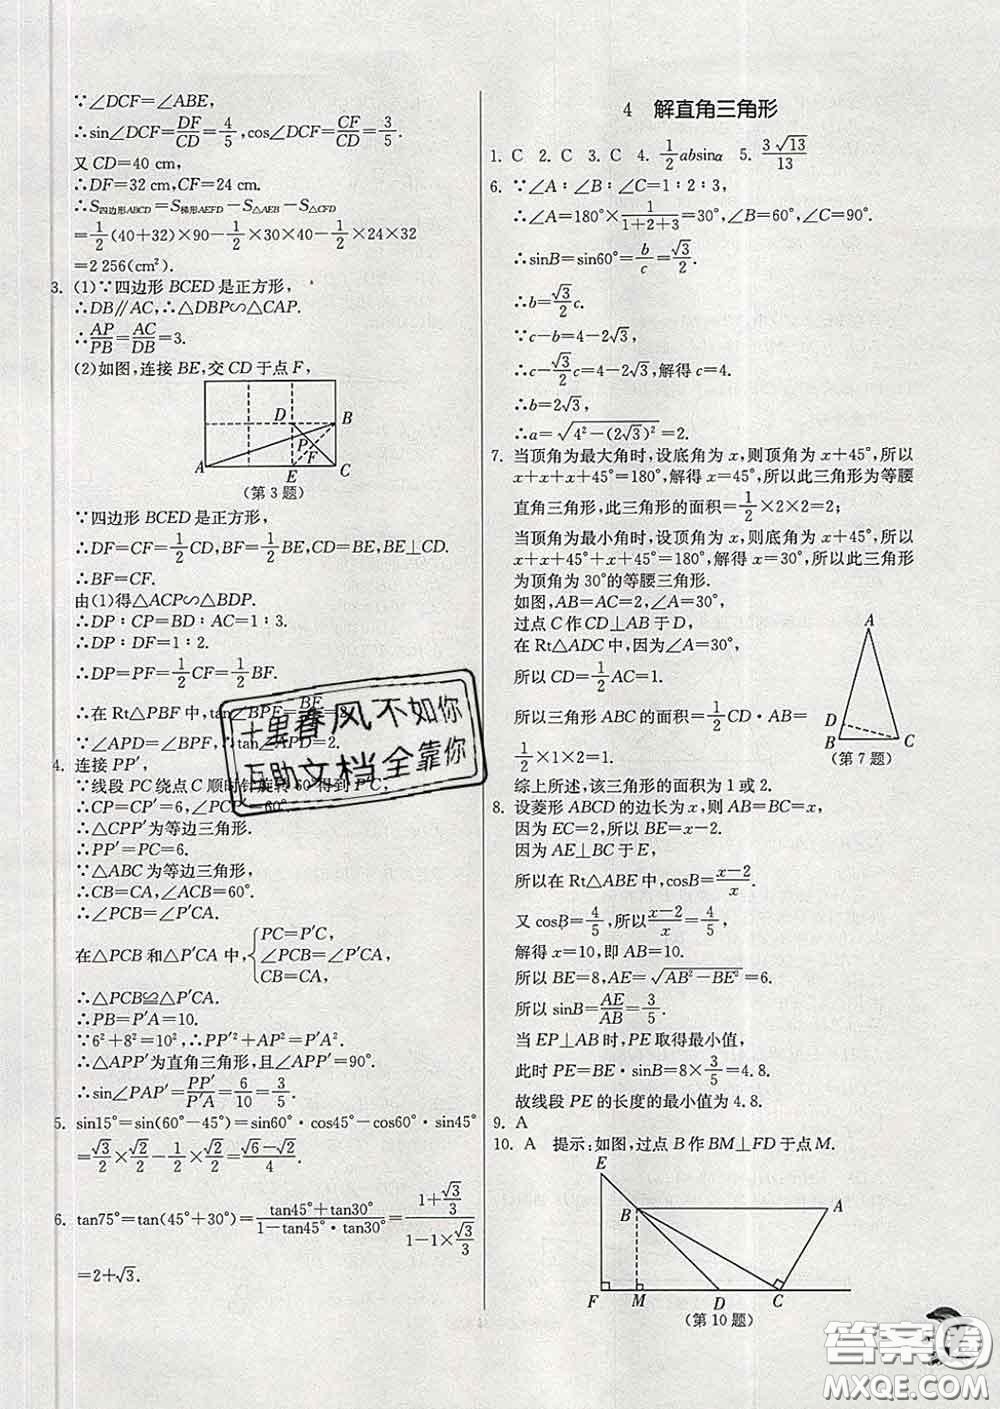 ∵∠DCF=∠ABE,
∴sin∠DCF=DF/CD=4/5,cos∠DCF=CF/CD=3/5.
又CD=40 cm,
∴DF=32 cm,CF=24 cm.
∴S四边形ABCD=S梯形AEFD−S△AEB−S△CFD
=1/2(40+32)×90−1/2×30×40−1/2×24×32
=2 256(cm²).
3. (1)∵四边形BCED是正方形,
∴DB∥AC,∴△DBP∽△CAP.
∴AP/PB=AC/DB=3.
(2)如图,连接BE,交CD于点F,
D
B
P
F
A
E
C
(第3题)
∵四边形BCED是正方形,
∴DF=CF=1/2CD,BF=1/2BE,CD=BE,BE⊥CD.
∴BF=CF.
由(1)得△ACP∽△BDP.
∴DP∶CP=BD∶AC=1∶3.
∴DP∶DF=1∶2.
∴DP=PF=1/2CF=1/2BF.
∴在Rt△PBF中,tan∠BPF=
∵∠APD=∠BPF,∴tan∠APD=2.
4. 连接PP′,
∵线段PC绕点C顺时针旋转60°得到P′C,
∴CP=CP′=6,∠PCP′=60°
∴△CPP′为等边三角形.
∴PP′=PC=6.
∵△ABC为等边三角形,
∴CB=CA,∠ACB=60°.
∴∠PCB=∠P′CA.
在△PCB和△P′CA中,{PC=P′C,
∠PCB=∠P′CA,
CB=CA,
∴△PCB≌△P′CA.
∴PB=P′A=10.
∵6²+8²=10²,∴PP′²+AP²=P′A².
∴△APP′为直角三角形,且∠APP′=90°.
∴sin∠PAP′=PP′/P′A=6/10=3/5.
5. sin15°=sin(60°−45°)=sin60°·cos45°−cos60°·sin45°
=√3/2×√2/2−1/2×√2/2=(√6−√2)/4.
6. tan75°=tan(45°+30°)=(tan45°+tan30°)/(1−tan45°·tan30°)=(1+√3/3)/(1−1×√3/3)
=2+√3.
4 解直角三角形
1. C 2. C 3. C 4. 1/2absinα 5. 3√13/13
6. ∵∠A∶∠B∶∠C=1∶2∶3,
∴∠A=180°×1/(1+2+3)=30°,∠B=60°,∠C=90°.
∴sinB=sin60°=b/c=√3/2.
∴b=√3/2c.
∵c−b=4−2√3,
∴c−√3/2c=4−2√3,解得c=4.
∴b=2√3,
∴a=√(4²−(2√3)²)=2.
7. 当顶角为最大角时,设底角为x,则顶角为x+45°,所以
x+x+x+45°=180°,解得x=45°,所以此三角形为等腰
直角三角形,此三角形的面积=1/2×2×2=2;
当顶角为最小角时,设顶角为x,则底角为x+45°,所以
x+x+45°+x+45°=180°,解得x=30°,所以此三角形
为顶角为30°的等腰三角形.
如图,AB=AC=2,∠A=30°,
过点C作CD⊥AB于D,
在Rt△ADC中,因为∠A=30°,
所以CD=1/2AC=1.
所以三角形ABC的面积=1/2CD·AB=
1/2×1×2=1.
A
D
B
C
(第7题)
综上所述,该三角形的面积为1或2.
8. 设菱形ABCD的边长为x,则AB=BC=x,
因为EC=2,所以BE=x−2.
因为AE⊥BC于E,
所以在Rt△ABE中,cosB=(x−2)/x.
又cosB=4/5,所以(x−2)/x=4/5,
解得x=10,即AB=10.
所以BE=8,AE=√(AB²−BE²)=6.
所以sinB=AE/AB=3/5.
当EP⊥AB时,PE取得最小值,
此时PE=BE·sinB=8×3/5=4.8.
故线段PE的长度的最小值为4.8.
9. A
10. A 提示:如图,过点B作BM⊥FD于点M.
E
B
A
F
M
D
C
(第10题)
十里春风不如你
互助文档全靠你
答案圈
MXQE.COM